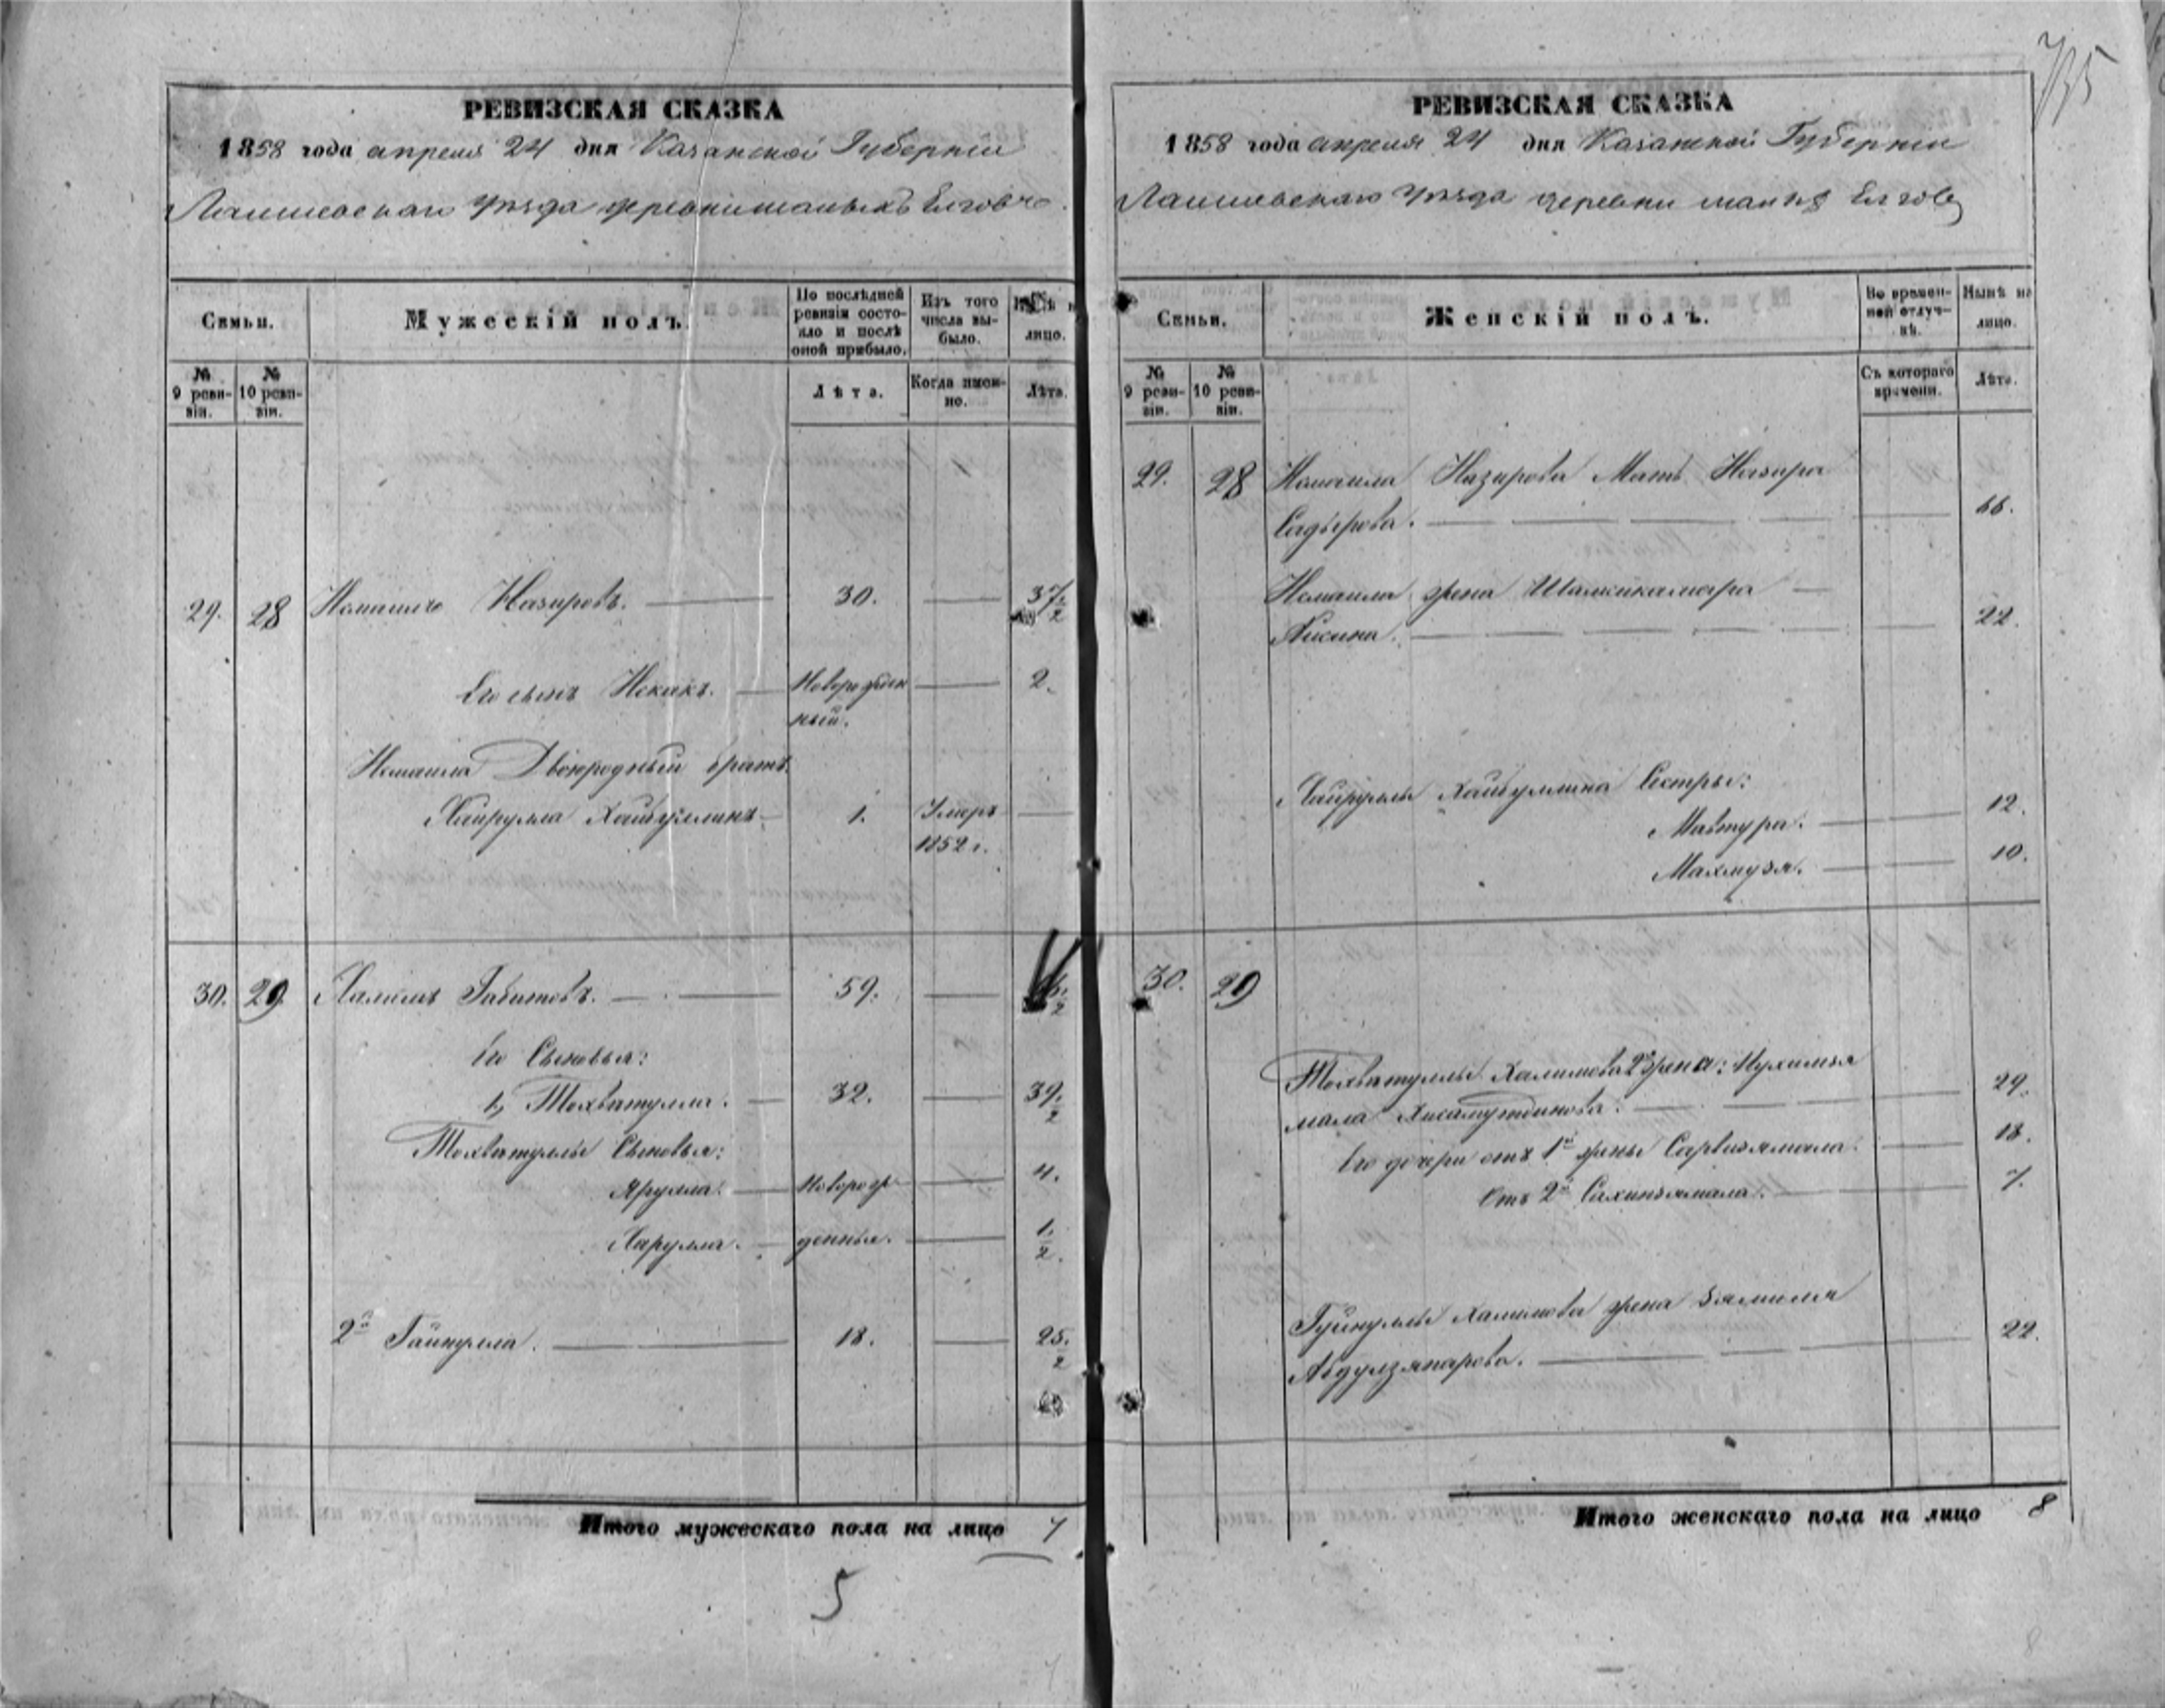 735
РЕВИЗСКАЯ СКАЗКА
1858 года апреля 24 дня Казанской Губернии
Лаишевскаго уезда деревни малыхъ Елгов
Семьи.
Мужескій полъ.
По послѣдней ревизіи состояло и послѣ оной прибыло.
Изъ того числа выбыло.
лицо.
№ 9 ревизіи.
№ 10 ревизіи.
Лѣта.
Когда именно.
Лѣта.
29. 28 Исмаилъ Назировъ. 30. 37. 1/2
Его сынъ Искакъ. Новорожден 2.
ный.
Исмаила Двоюродный братъ
Хайрулла Хайбуллинъ 1. Умеръ
1852 г.
30. 29. Халимъ Габитовъ. 59.
Его Сыновья:
1, Тохватулла. 32. 39. 1/2
Тохватуллы Сыновья:
Ярулла. Новорож 4.
Харулла. денные. 1/2
2й Гайнулла. 18. 25. 1/2
Итого мужескаго пола на лицо 7
5
РЕВИЗСКАЯ СКАЗКА
1858 года апреля 24 дня Казанской Губернии
Лаишевскаго уезда деревни малыхъ Елгов
Семьи.
Женскій полъ.
Во временной отлучкѣ.
Нынѣ на лицо.
№ 9 ревизіи.
№ 10 ревизіи.
Съ котораго времени.
Лѣта.
29. 28 Исмаила Назирова Мать Назира
Садырова. 66.
Исмаила жена Шамсикамара
22.
Хайруллы Хайбуллина Сестры:
Мавтура. 12.
Махмузя. 10.
30. 29
Тохватуллы Халимова 2я жена:
мала Хисамутдинова. 29.
Его дочери отъ 1й жены Сарвизямала. 18.
Отъ 2й Сахинзямала. 7.
Гайнуллы Халимова жена Зямиля
Абдулзяпарова. 22.
Итого женскаго пола на лицо 8